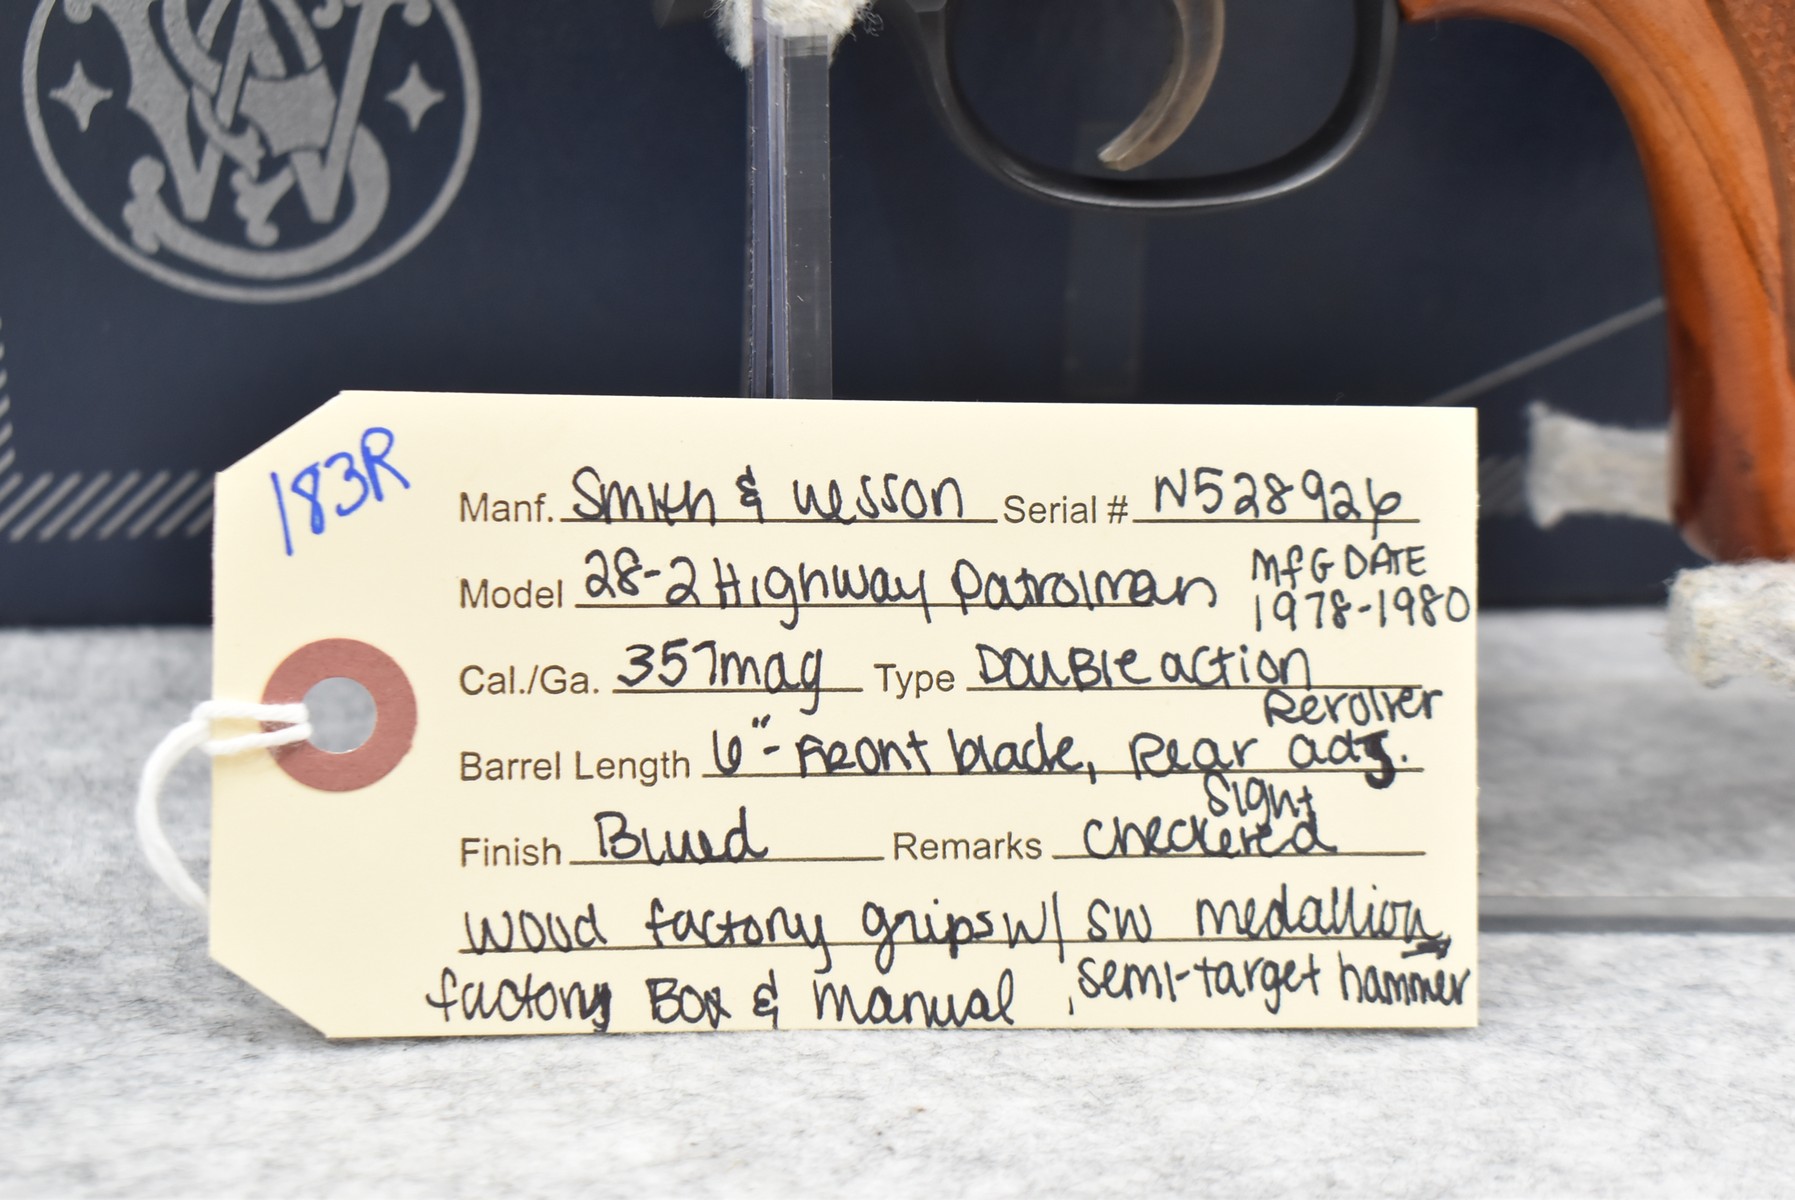 183R
Manf. Smith & Wesson Serial # N528926
Model 28-2 Highway Patrolman MFG DATE
1978-1980
Cal./Ga. 357mag Type Double action
Revolver
Barrel Length 6" - Front blade, Rear adj.
Sight
Finish Blued Remarks Checkered
Wood factory grips w/ SW medallion,
factory Box & manual , semi-target hammer